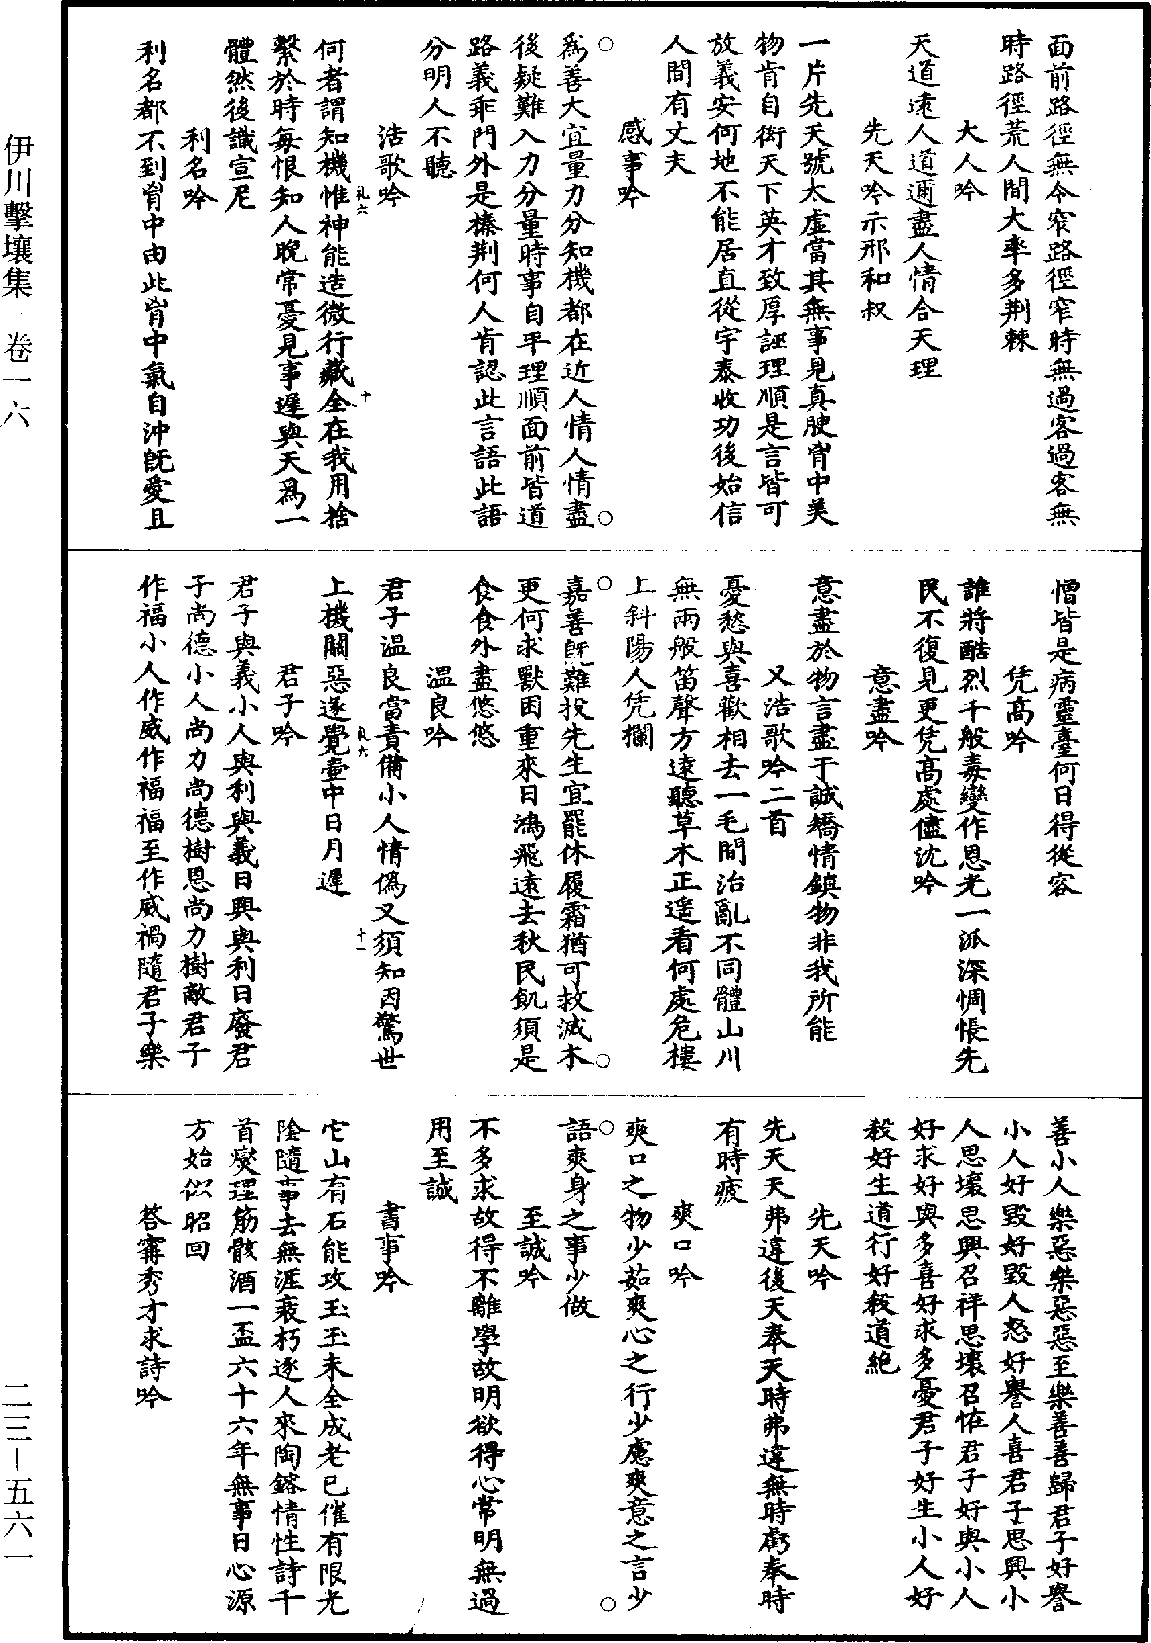 面前路徑無令窄路徑窄時無過客過客無
時路徑荒人間大率多荆棘
大人吟
天道遠人道邇盡人情合天理
先天吟示邢和叔
一片先天號太虛當其無事見真腴胷中美
物肯自衒天下英才致厚誣理順是言皆可
放義安何地不能居直從宇泰收功後始信
人間有丈夫
感事吟
爲善大宜量力分知機都在近人情人情盡
後疑難入力分量時事自平理順面前皆道
路義乖門外是榛荆何人肯認此言語此語
分明人不聽
浩歌吟
何者謂知機惟神能造微行藏全在我用捨
繫於時每恨知人晚常憂見事遲與天爲一
體然後識宣尼
利名吟
利名都不到胷中由此胷中氣自沖旣愛且
憎皆是病靈臺何日得從容
凭高吟
誰將酷烈千般毒變作恩光一派深惆悵先
民不復見更凭高處儘沈吟
意盡吟
意盡於物言盡于誠矯情鎮物非我所能
又浩歌吟二首
憂愁與喜歡相去一毛間治亂不同體山川
無兩般笛聲方遠聽草木正遥看何處危樓
上斜陽人凭欄
嘉善旣難投先生宜罷休履霜猶可救滅木
更何求獸困重來日鴻飛遠去秋民飢須是
食食外盡悠悠
溫良吟
君子溫良當責備小人情僞又須知因驚世
上機關惡遂覺壷中日月遲
君子吟
君子與義小人與利與義日興與利日廢君
子尚德小人尚力尚德樹恩尚力樹敵君子
作福小人作威作福福至作威禍隨君子樂
善小人樂惡樂惡惡至樂善善歸君子好譽
小人好毀好毀人怒好譽人喜君子思興小
人思壞思興召祥思壞召怪君子好與小人
好求好與多喜好求多憂君子好生小人好
殺好生道行好殺道絶
先天吟
先天天弗違後天奉天時弗違無時虧奉時
有時疲
爽口吟
爽口之物少茹爽心之行少慮爽意之言少
語爽身之事少做
至誠吟
不多求故得不離學故明欲得心常明無過
用至誠
書事吟
它山有石能攻玉玉未全成老已催有限光
陰隨事去無涯衰朽逐人來陶鎔情性詩千
首燮理筋骸酒一盃六十六年無事日心源
方始似昭回
荅甯秀才求詩吟
伊川擊壤集 卷一六
二三—五六一